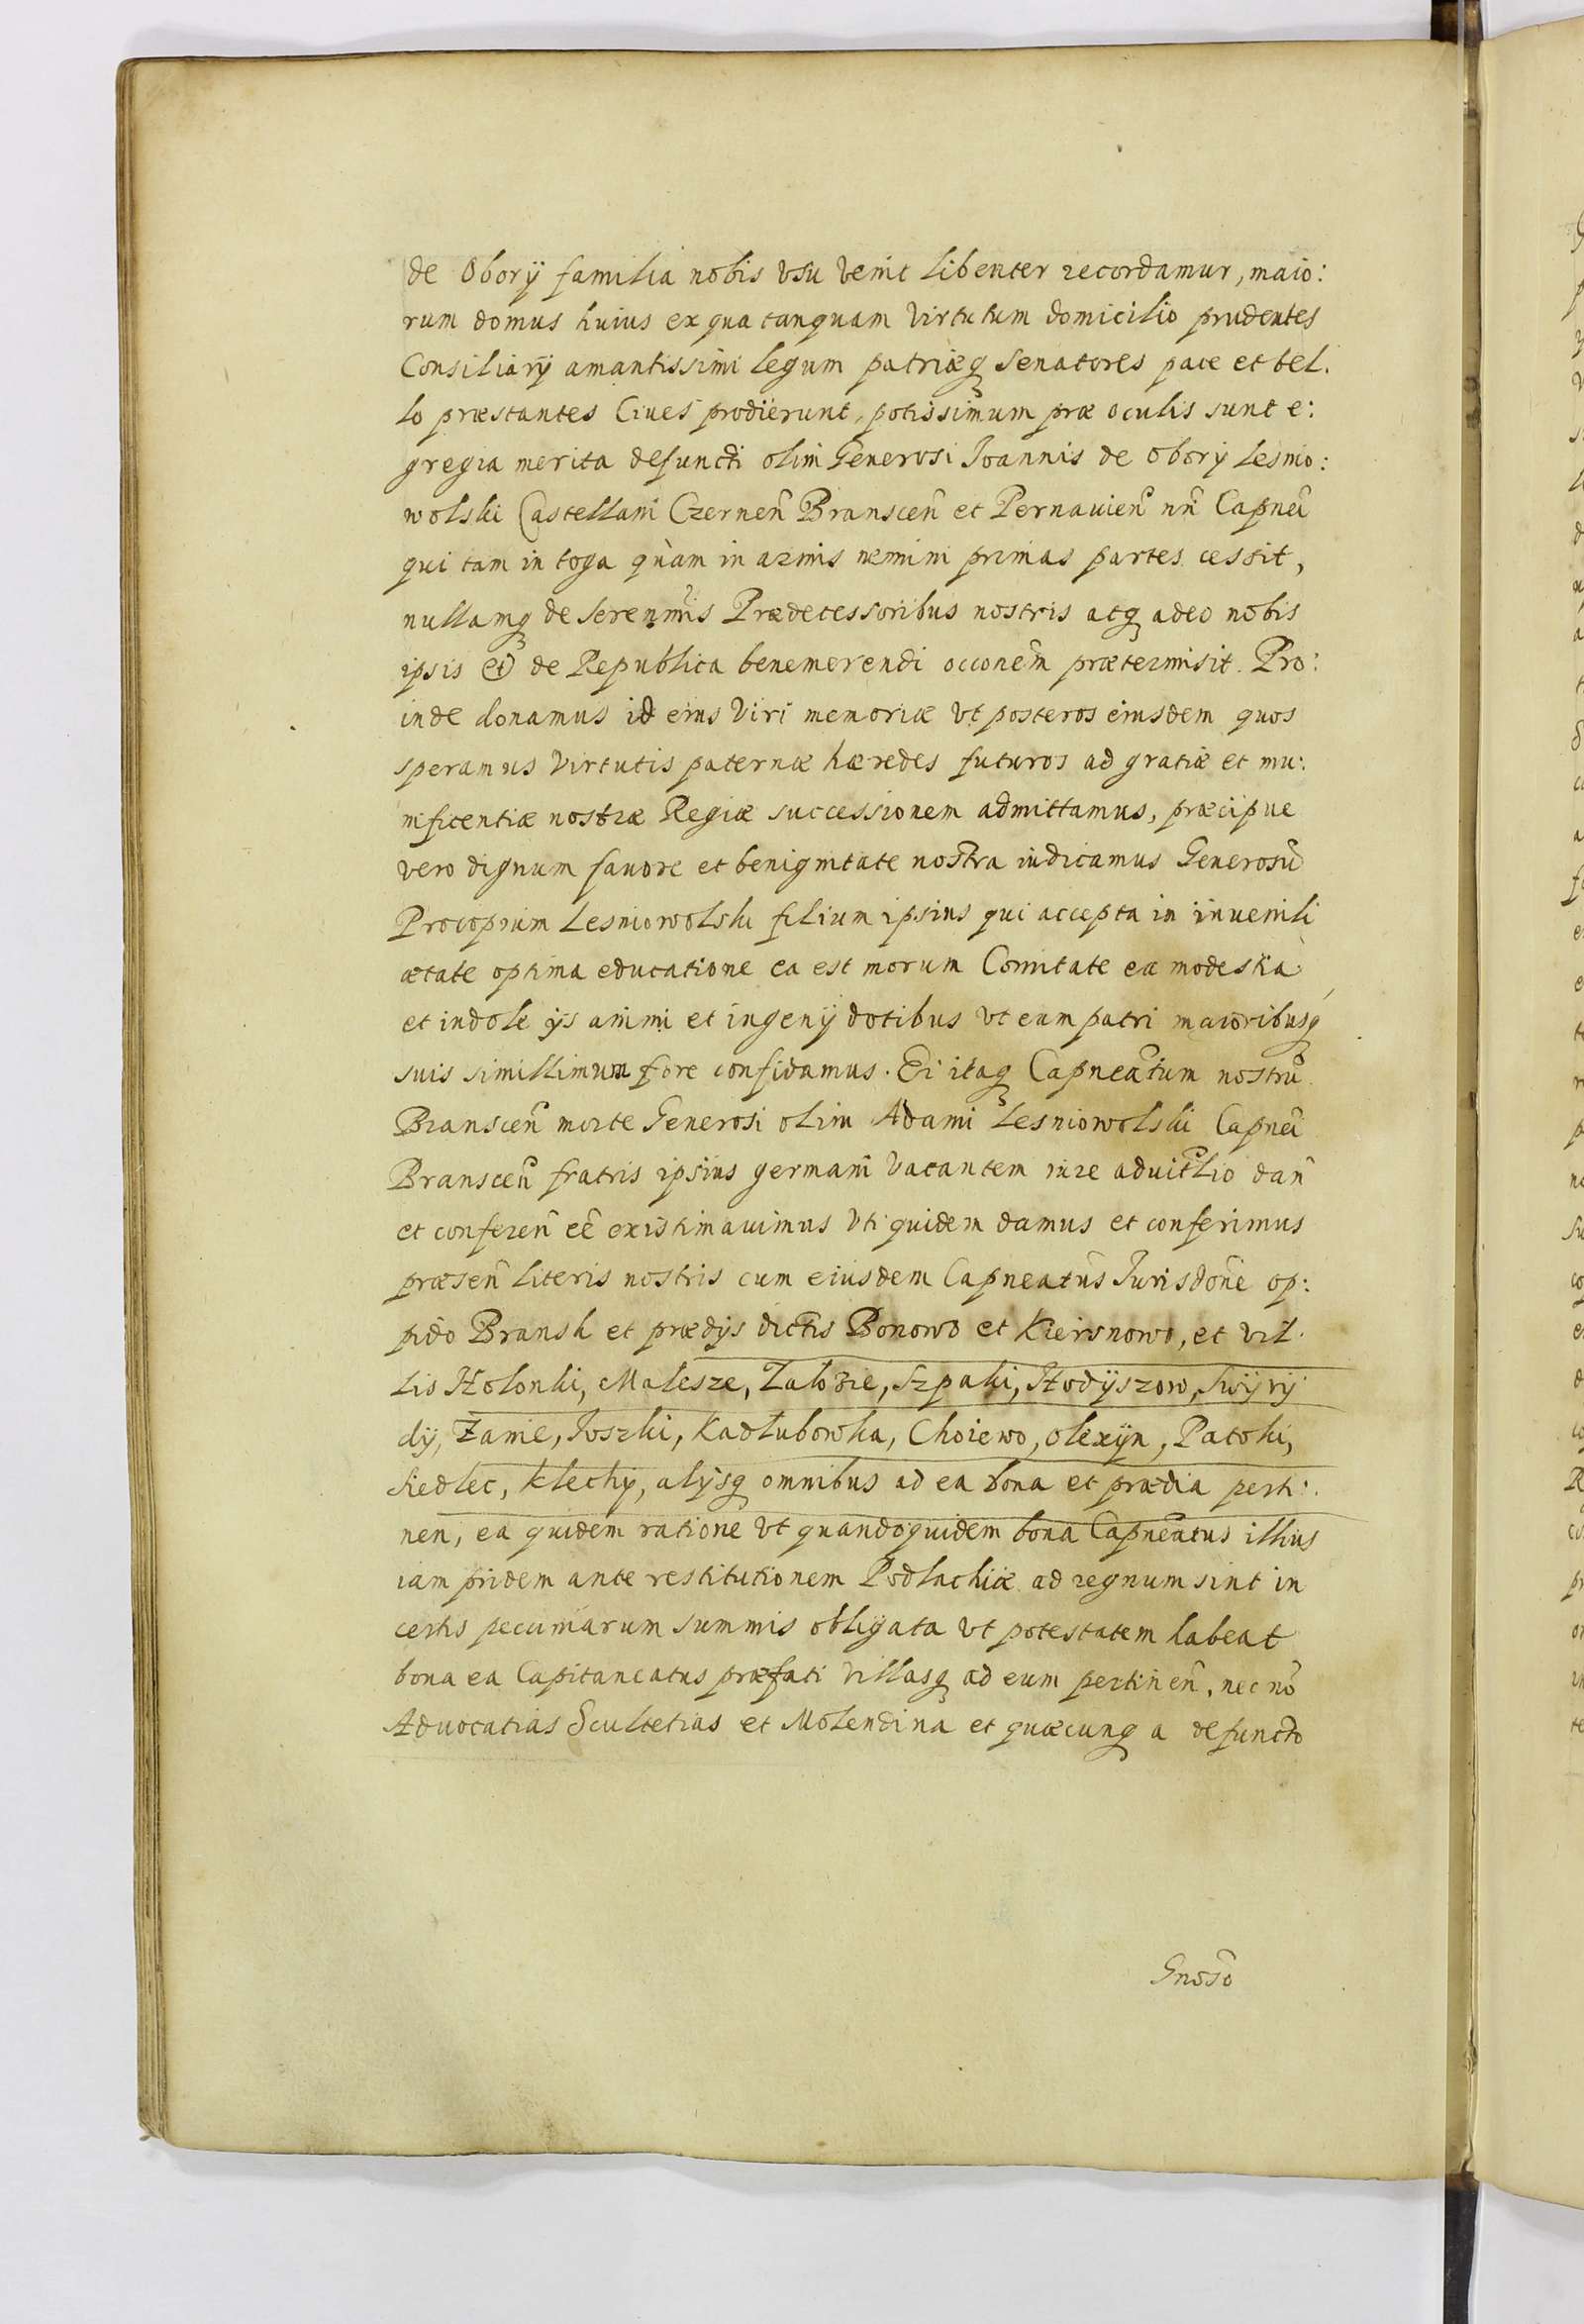 de Oborÿ familia nobis vsu venit libenter recordamur, maio:
rum domus huius ex qua tanquam virtutum domicilio prudentes
Consiliarÿ amantissimi legum patriæq senatores pace et bel.
lo præstantes Ciues prodierunt, potissimum præ oculis sunt e:
gregia merita defuncti olim Generosi Joannis de Oborÿ Lesnio:
wolski Castellani Czernen̄ Branscen̄ et Pernauien̄ nr̄i Capnei
qui tam in toga quàm in armis nemini primas partes cessit,
nullamq de Seren̄mis Prædecessoribus nostris atq adeo nobis
ipsis et de Republica benemerendi occonem̄ prætermisit. Pro:
inde donamus id eius viri memoriæ vt posteros eiusdem quos
speramus virtutis paternæ hæredes futuros ad gratiæ et mu:
nificentiæ nostræ Regiæ successionem admittamus, præcipue
vero dignum fauore et benignitate nostra iudicamus Generosū
Procopium Lesniowolski filium ipsius qui accepta in iuuenili
ætate optima educatione ea est morum Comitate ea modestia
et indole ÿs animi et ingenÿ dotibus vt eum patri maioribusq
suis simillimum fore confidamus. Ei itaq Capneatum nostrū
Branscen̄ morte Generosi olim Adami Lesniowolski Capnei
Branscen̄ fratris ipsius germani vacantem iure aduitlio dan̄
et conferen̄ eē existimauimus vti quidem damus et conferimus
præsen̄ literis nostris cum eiusdem Capneatus Jurisdone op:
pido Bransk et prædÿs dictis Bonowo et Kiersnowo, et vil.
lis Holonki, Malesze, Zalozie, Szpaki, Hodÿszow, Swÿrÿ
dÿ, Zanie, Joszki, Kadlubowka, Choiewo, Olexÿn, Patoki,
Siedlec, Klechÿ, alÿsq omnibus ad ea bona et prædia perti:
nen, ea quidem ratione vt quandoquidem bona Capneatus illius
iam pridem ante restitutionem Podlachiæ ad regnum sint in
certis pecuniarum summis obligata vt potestatem habeat
bona ea Capitaneatus præfati villasq ad eum pertinen̄, nec nō
Aduocatias Scultetias et Molendina et quæcunq a defuncto
Gnoso